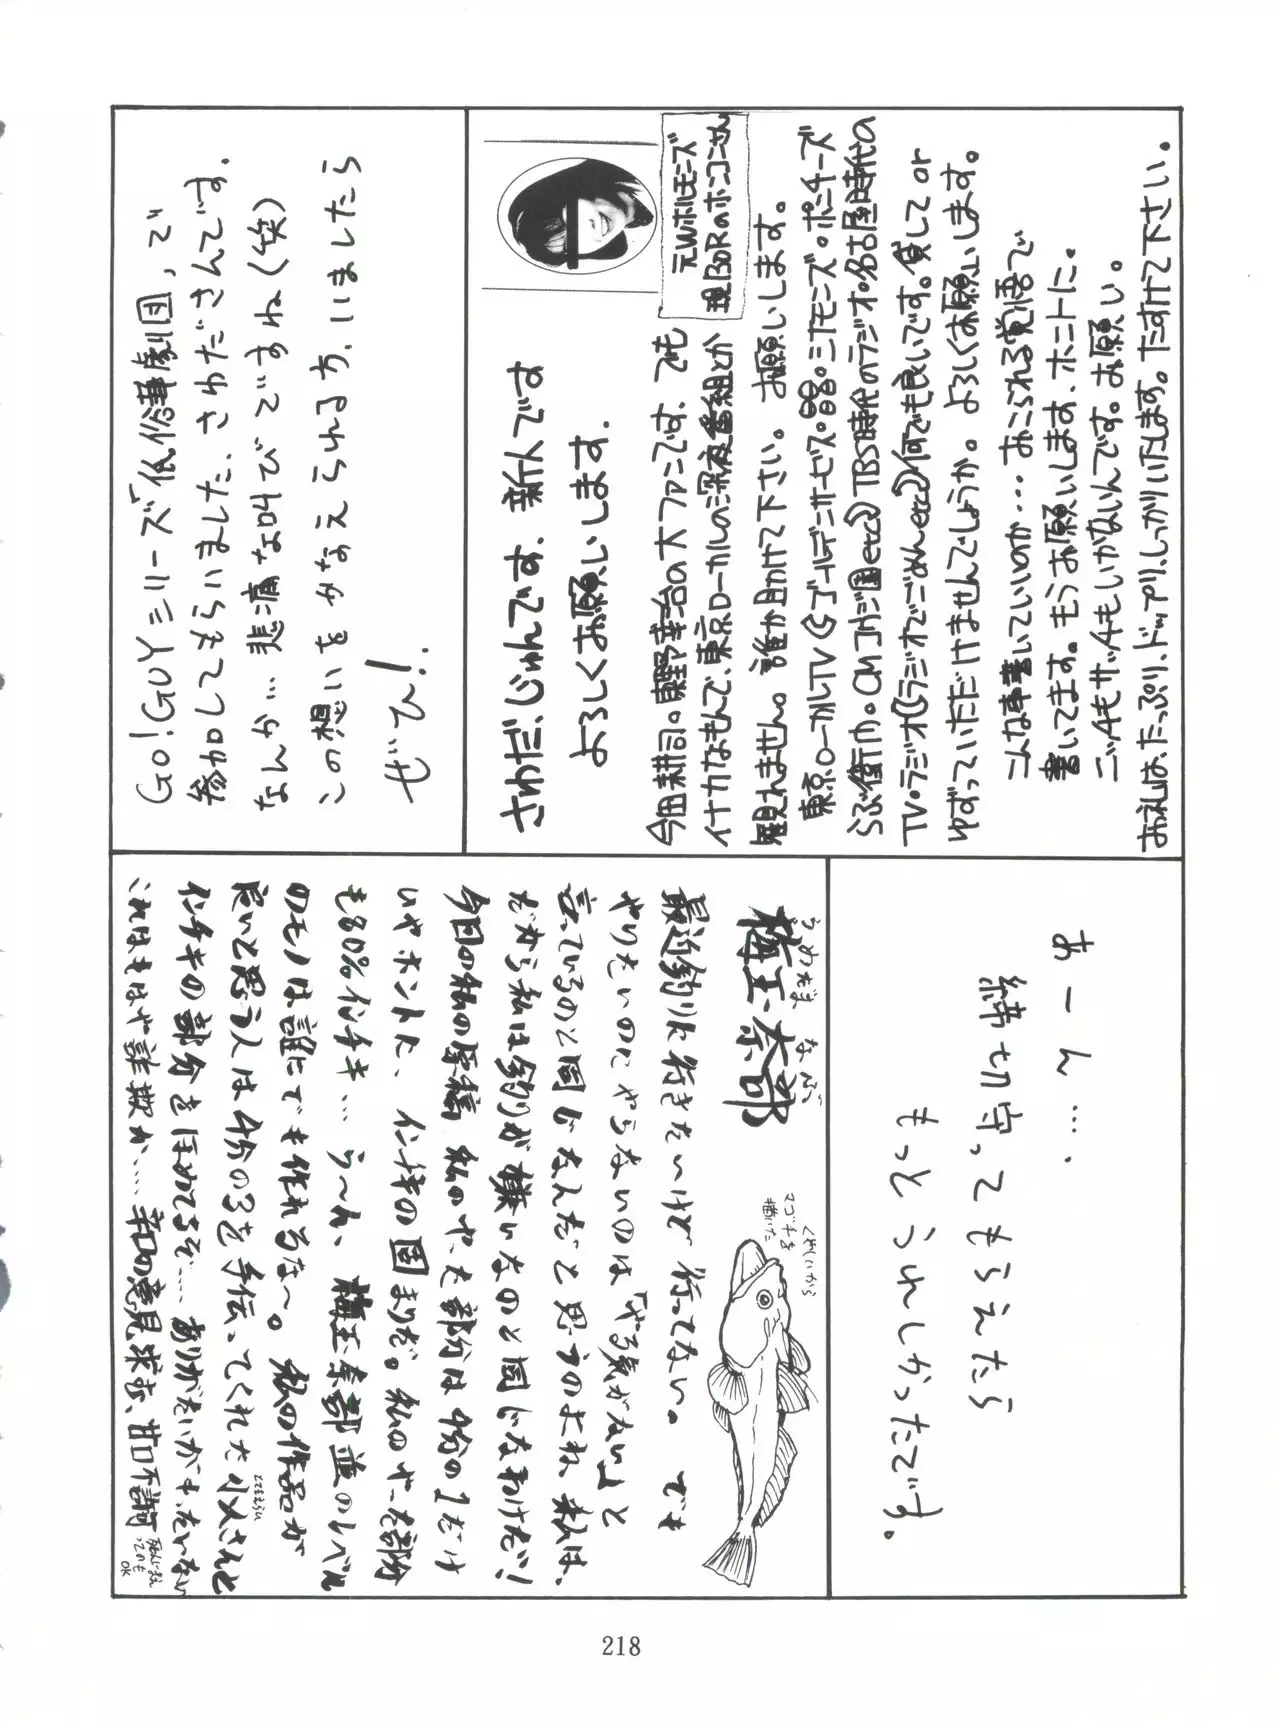 Go!GUYシリーズ「低俗夢劇団」で
参加してもらいました、さわださんです.
なんか… 悲痛な叫びですね(笑)
この想いをかなえられる方、いましたら
ぜひ!.
元Wホルモンズ
現130Rのホンコンさん
さわだ.じゅんです. 新人です
よろしくお願いします.
今田耕司。東野幸治の大ファンです、でも
イナカなもんで、東京ローカルの深夜番組とか
観れません。誰か助けて下さい。お願いします。
らぶ衝力。CMコウジ園etc)TBS時代のラジオ・名古屋時代の
TV・ラジオ(ラジオでごめんetc)何でも良いです。貸して or
ゆずっていただけませんでしょうか。よろしくお願いします。
こんな事書いていいのか… おこられる覚悟で
書いてます。もうお願いします、ホントに。
ニッチもサッチもいかないんです。お願い。
お礼は、たっぷり、ドップリ、しっかりいたします。たすけて下さい。
あーん….
締切守ってもらえたら
もっとうれしかったです.
うめだま なべぶ
梅玉奈部
くやしいから
マゴチを
描いた
最近釣りに行きたいけど 行ってない。でも
やりたいのにやらないのは「やる気がない」と
言っているのと同じなんだと思うのよね、私は、
だから私は釣りが嫌いなのと同じなわけだ!
今回の私の原稿 私のやった部分は4分の1だけ
いやホントに、インチキの固まりだ。私のやった部分
も80%インチキ… う〜ん、梅玉奈部並のレベル
のモノは誰にでも作れるな〜。私の作品が
良いと思う人は4分の3を手伝ってくれた
インチキの部分をほめてるぞ… ありがたいがもったいない
これはもはや詐欺か…… 辛口の意見求む、甘口不認可
OK
218